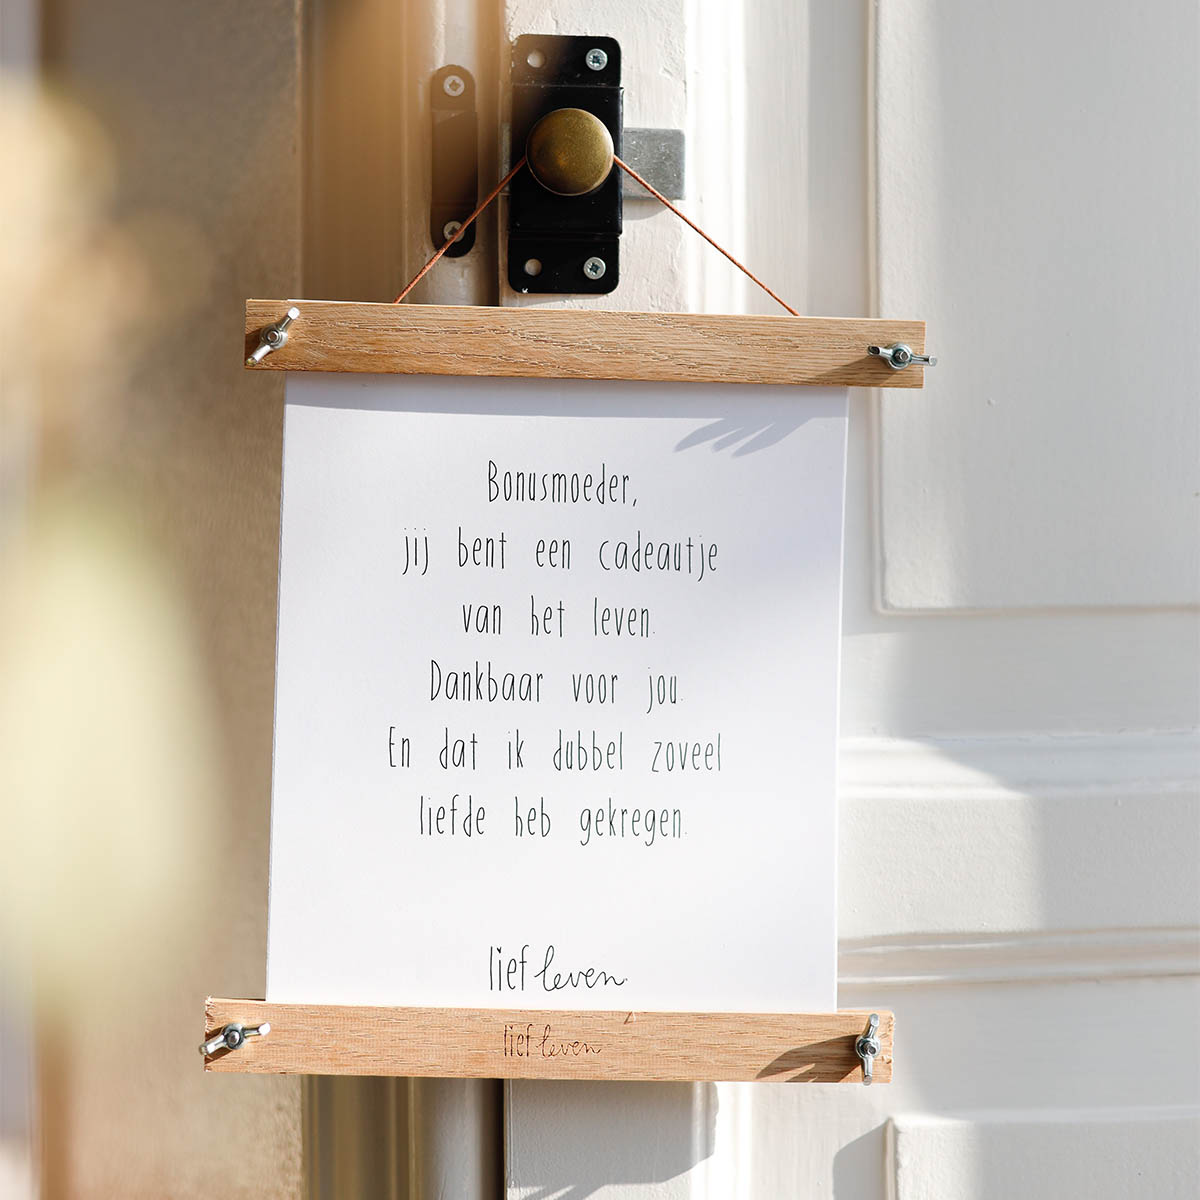 Bonusmoeder,
jij bent een cadeautje
van het leven.
Dankbaar voor jou.
En dat ik dubbel zoveel
liefde heb gekregen.
lief leven.
lief leven